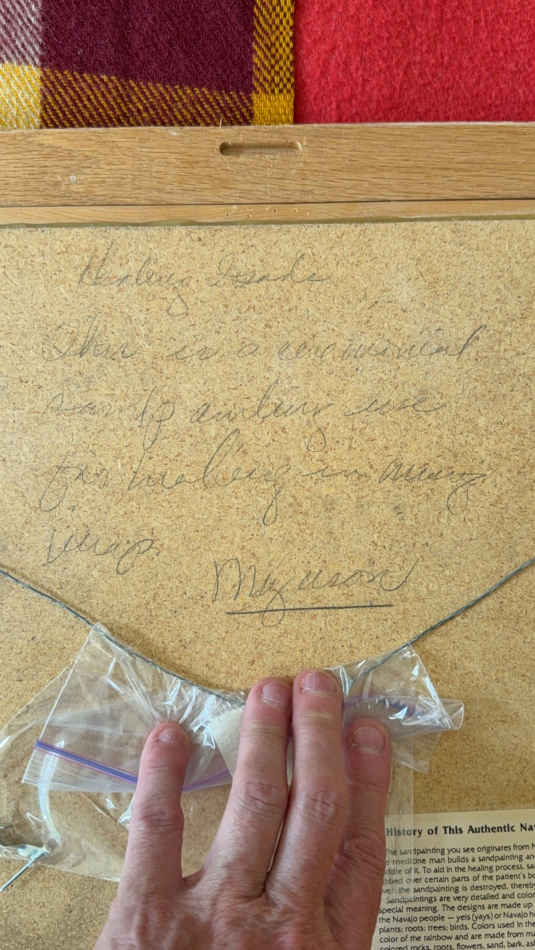 Healing
This is a ceremonial
sandpainting use
for healing in many
ways
History of This Authentic Na
The sandpainting you see originates from h
medicine man builds a sandpainting an
of it. To aid in the healing process, sa
over certain parts of the patient's bo
the sandpainting is destroyed, thereb
Sandpaintings are very detailed and color
special meaning. The designs are made up
the Navajo people — yeis (yays) or Navajo h
plants; roots; trees; birds. Colors used in the
color of the rainbow and are made from ma
colored rocks, roots, flowers, sand, bark, as